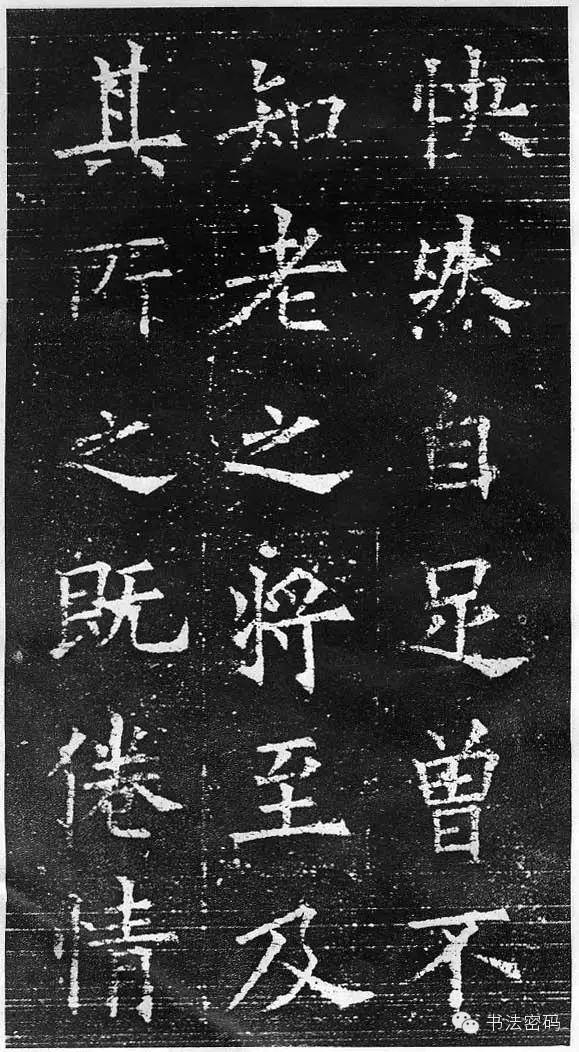 快然自足曽不
知老之將至及
其所之既倦情
书法密码